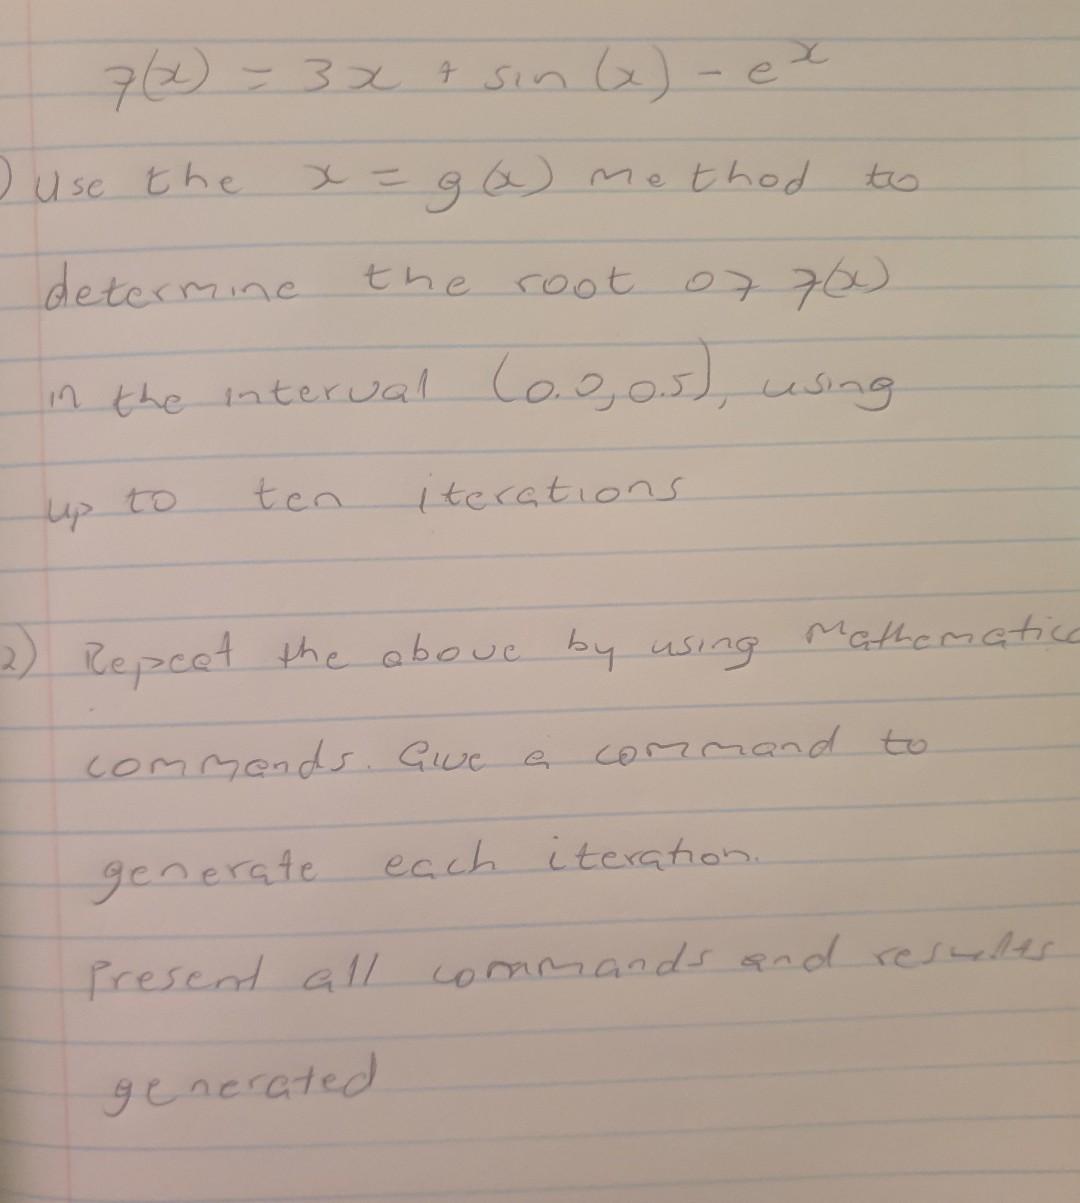 f(x) = 3x + sin(x) - e^x
) Use the x = g(x) method to
determine the root of f(x)
in the interval (0.0, 0.5), using
up to ten iterations
2) Repeat the above by using Mathematica
commands. Give a command to
generate each iteration.
Present all commands and results
generated